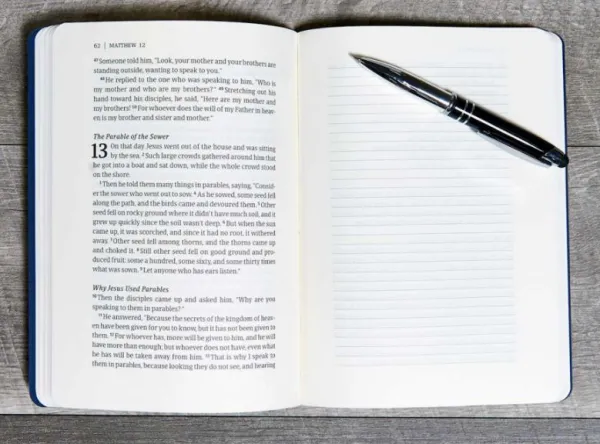 62 | MATTHEW 12
47 Someone told him, "Look, your mother and your brothers are
standing outside, wanting to speak to you."
48 He replied to the one who was speaking to him, "Who is
my mother and who are my brothers?" 49 Stretching out his
hand toward his disciples, he said, "Here are my mother and
my brothers! 50 For whoever does the will of my Father in heav-
en is my brother and sister and mother."
The Parable of the Sower
13 On that day Jesus went out of the house and was sitting
by the sea. 2 Such large crowds gathered around him that
he got into a boat and sat down, while the whole crowd stood
on the shore.
3 Then he told them many things in parables, saying, "Consid-
er the sower who went out to sow. 4 As he sowed, some seed fell
along the path, and the birds came and devoured them. 5 Other
seed fell on rocky ground where it didn't have much soil, and it
grew up quickly since the soil wasn't deep. 6 But when the sun
came up, it was scorched, and since it had no root, it withered
away. 7 Other seed fell among thorns, and the thorns came up
and choked it. 8 Still other seed fell on good ground and pro-
duced fruit: some a hundred, some sixty, and some thirty times
what was sown. 9 Let anyone who has ears listen."
Why Jesus Used Parables
10 Then the disciples came up and asked him, "Why are you
speaking to them in parables?"
11 He answered, "Because the secrets of the kingdom of heav-
en have been given for you to know, but it has not been given to
them. 12 For whoever has, more will be given to him, and he will
have more than enough; but whoever does not have, even what
he has will be taken away from him. 13 That is why I speak to
them in parables, because looking they do not see, and hearing